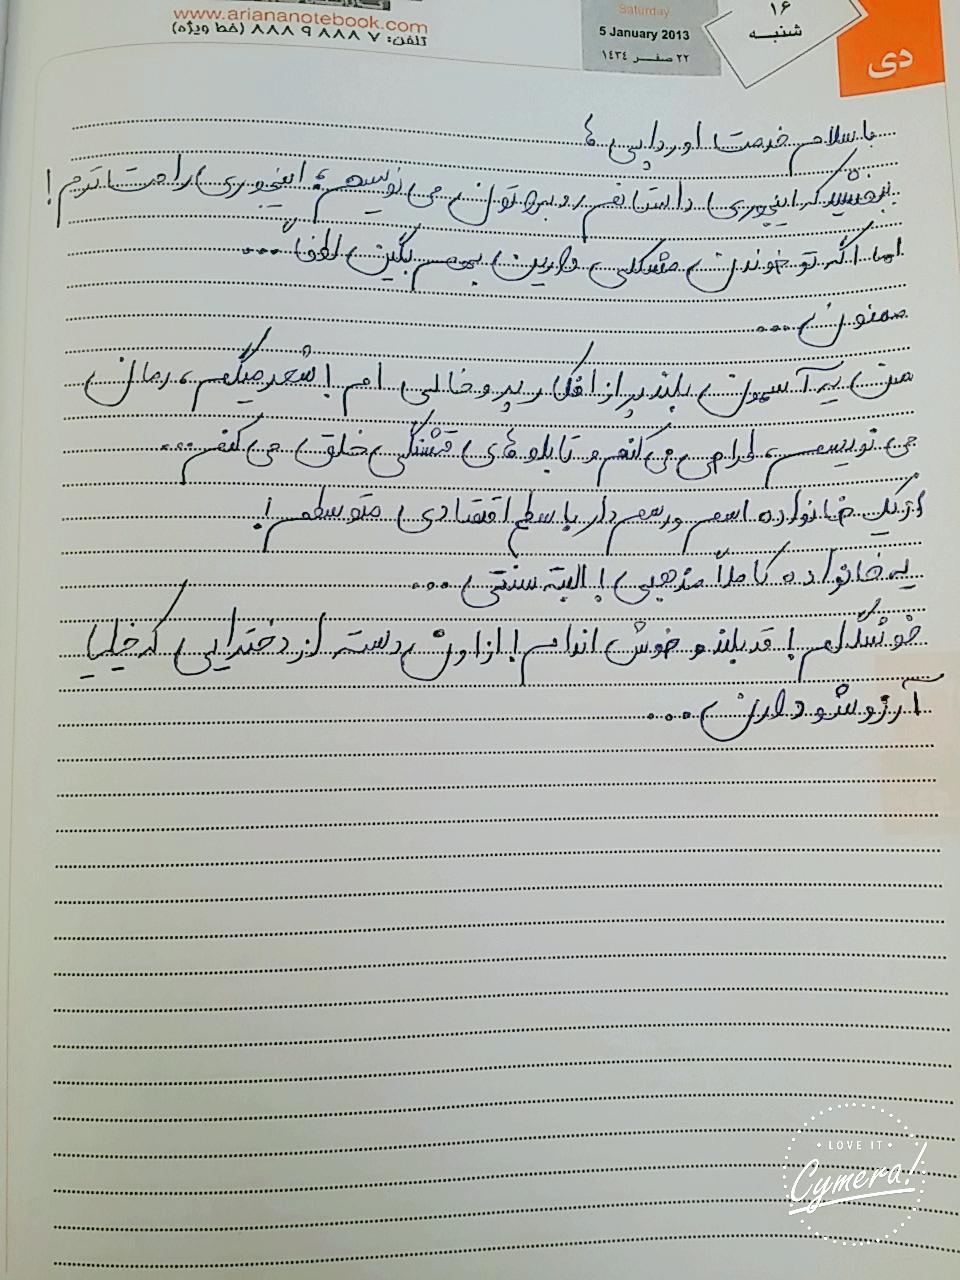 www.ariananotebook.com
تلفن: ۸۸۸۹۸۸۸۷ (خط ویژه)
Saturday
5 January 2013
۲۲ صفر ۱۴۳۴
۱۶
شنبه
دی
با سلام خدمت اوردایی ها
ببخشید که اینجوری داستانم رو براتون می نویسم؛ اینجوری راحت ترم!
اما اگه تو خوندن مشکلی دارین بهم بگین لطفاً ...
ممنون ...
من یه آسمون بلند پر از افکار پر و خالی ام! شعر میگم، رمان
می نویسم، طراحی می کنم و تابلوهای قشنگی خلق می کنم ...
از یک خانواده اسم و رسم دار با سطح اقتصادی متوسطم!
یه خانواده کاملاً مذهبی! البته سنتی ...
خوشگلم با قد بلند و خوش اندام! از اون دسته از دخترایی که خیلیا
آرزوشو دارن ...
LOVE IT
Cymera!